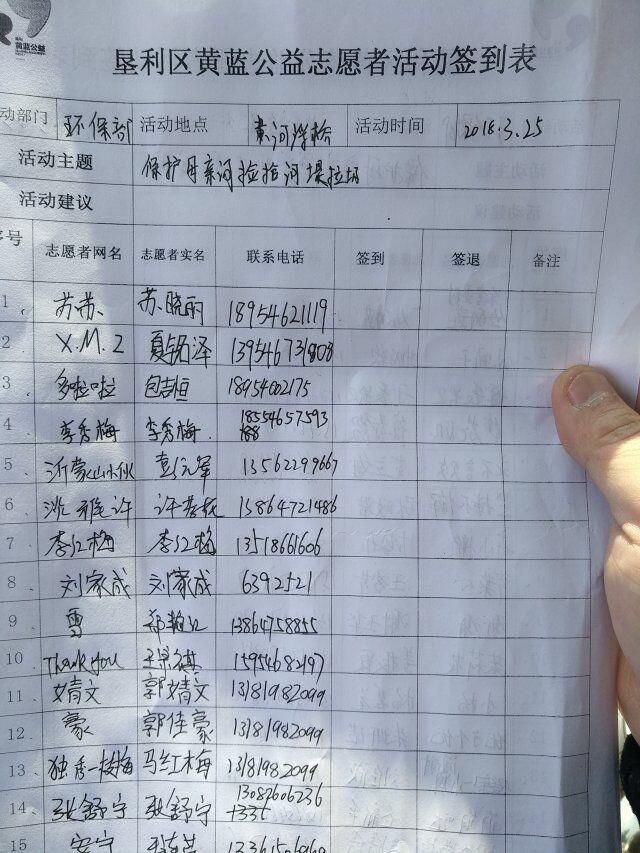 黄蓝公益
垦利区黄蓝公益志愿者活动签到表
动部门 环保部 活动地点 黄河浮桥 活动时间 2018.3.25
活动主题 保护母亲河捡拾河堤垃圾
活动建议
序号 志愿者网名 志愿者实名 联系电话 签到 签退 备注
1 苏苏 苏晓丽 18954621119
2 X.M.Z 13954673808
3 多啦啦 包吉恒 18954002175
4 李秀梅 李秀梅 18554657593
5 沂蒙山小伙 13562299667
6 13864721486
7 李红梅 李红梅 13518661606
8 刘家成 刘家成 6392521
9 雪 13864758855
10 Thank you 15954682197
11 婧文 郭婧文 13181982099
12 豪 郭佳豪 13181982099
13 独秀一枝梅 马红梅 13181982099
14 张舒宁 张舒宁 13082606236
15 安宁